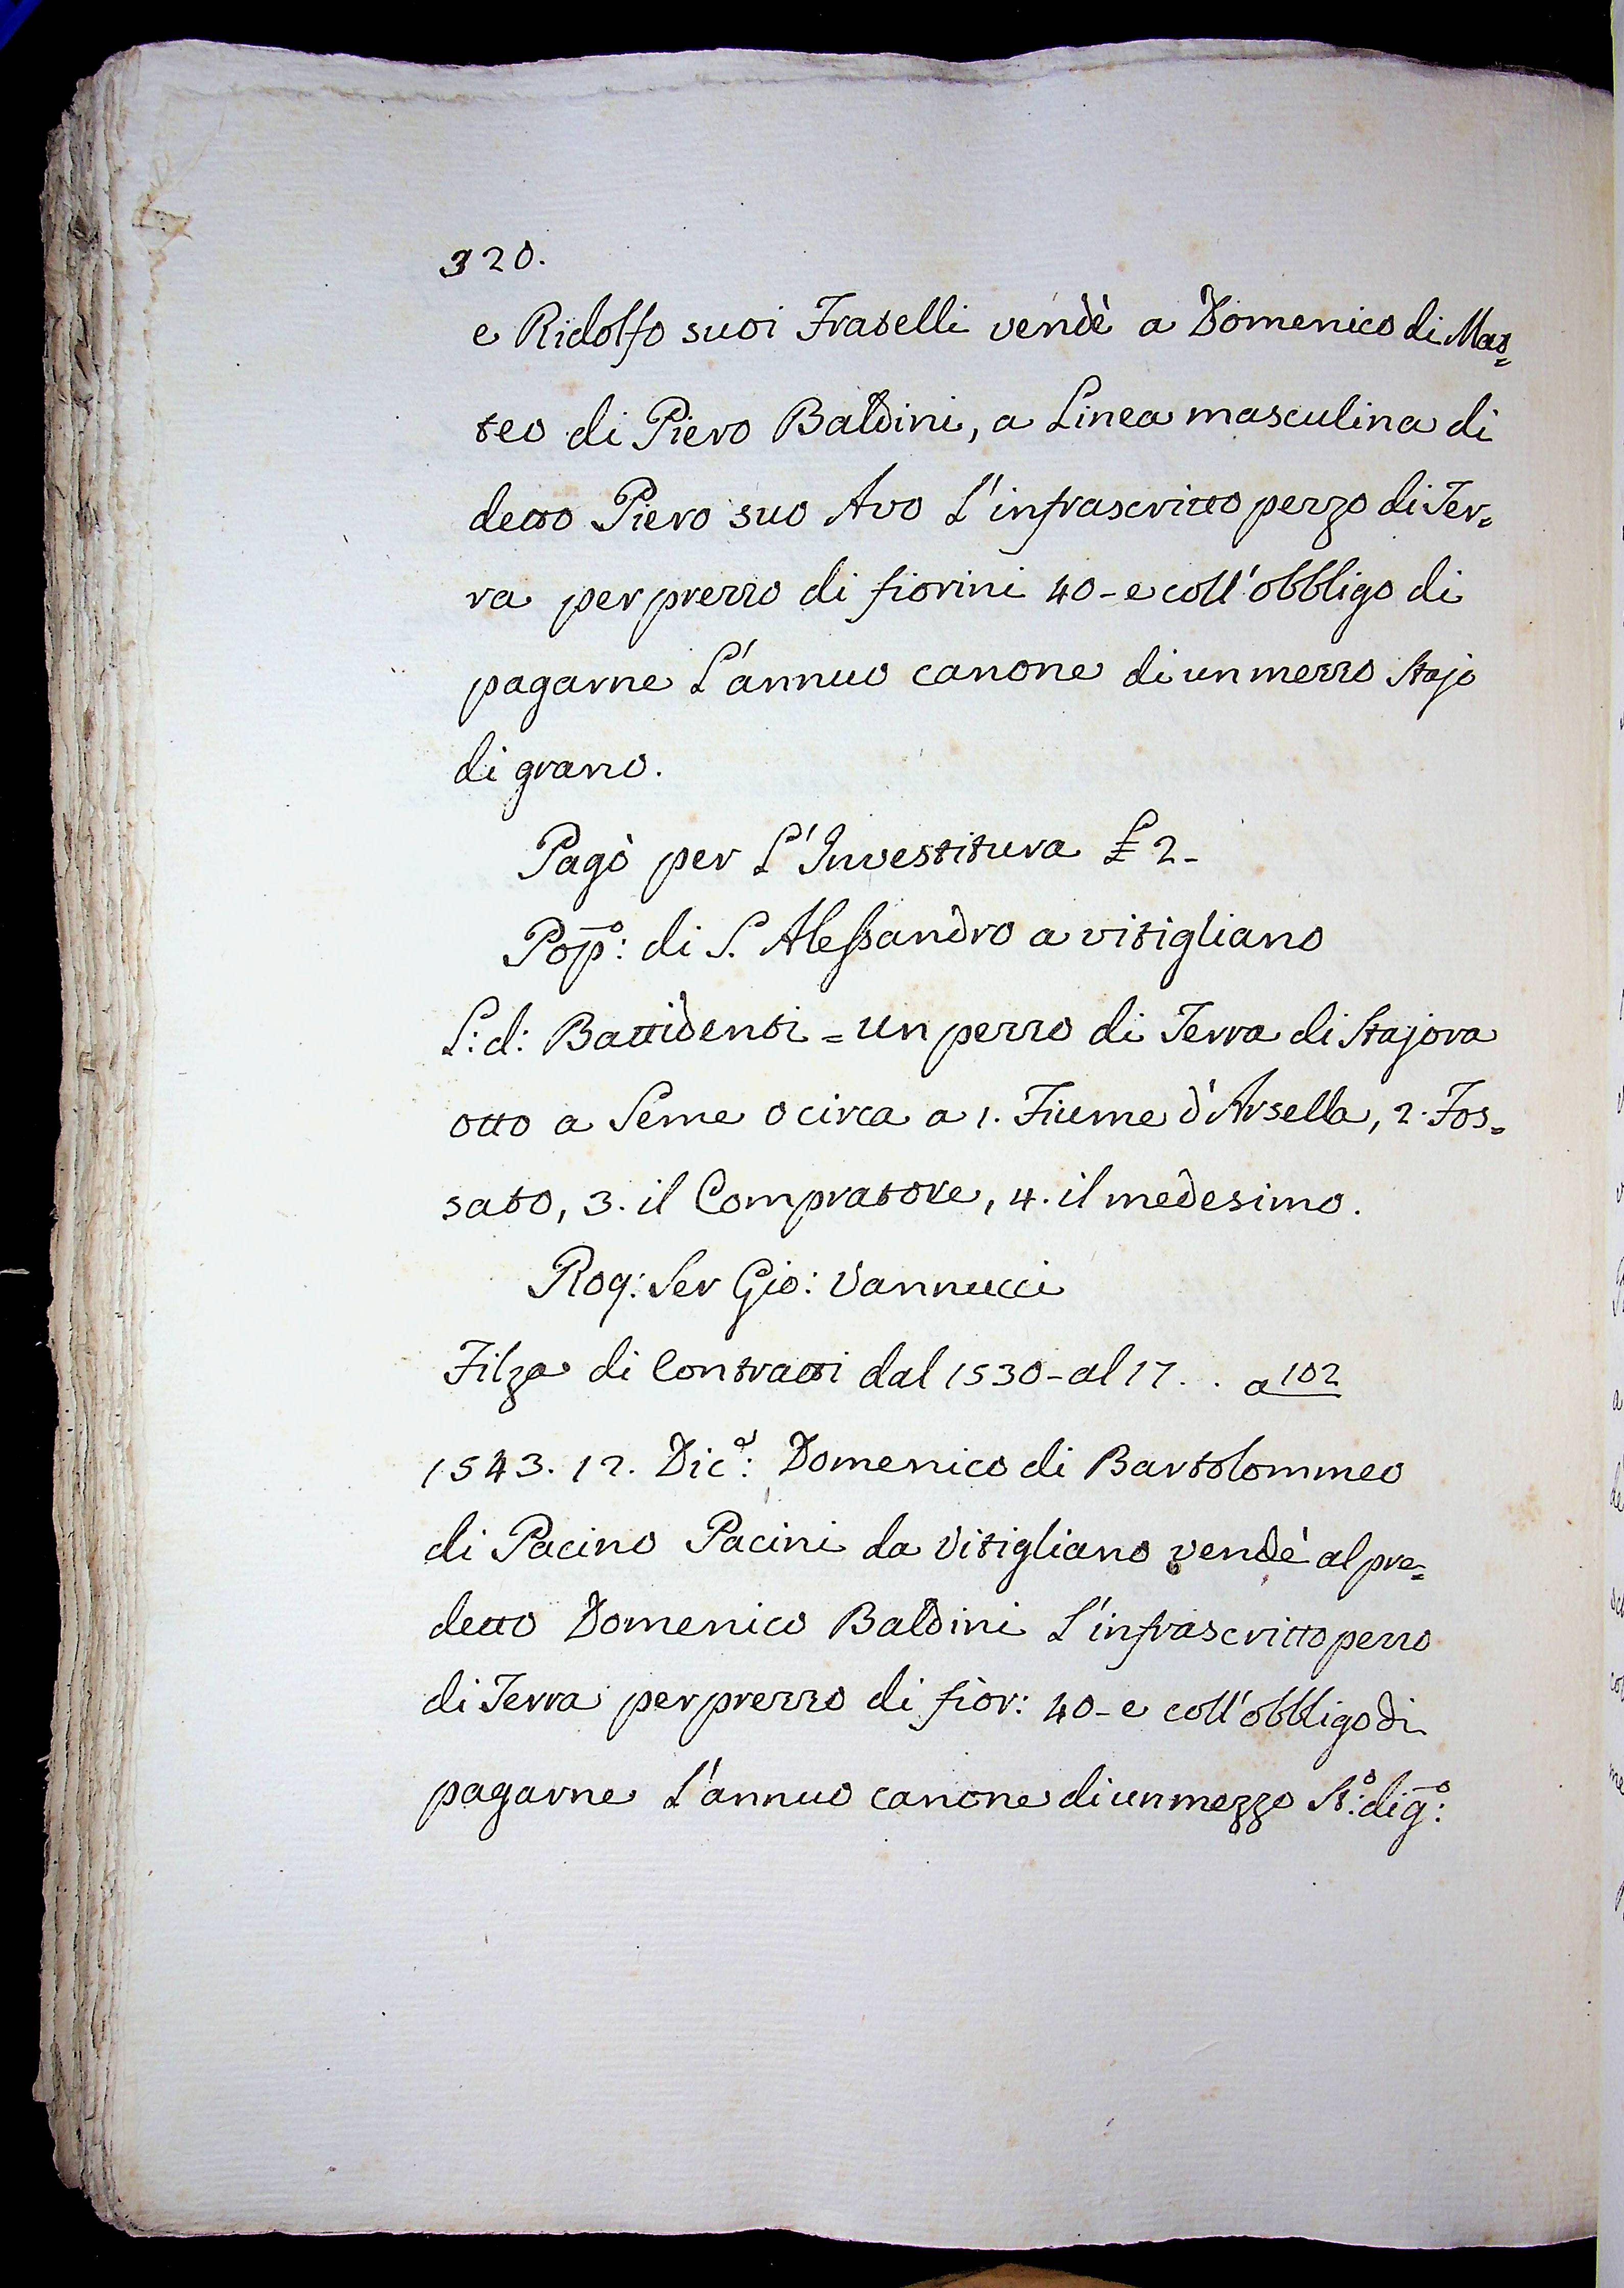 320.
e Ridolfo suoi Fratelli vendè a Domenico di Mat=
teo di Piero Baldini, a Linea masculina di
detto Piero suo Avo L'infrascritto pezzo di Ter=
ra per prezzo di fiorini 40- e coll'obbligo di
pagarne L'annuo canone di un mezzo Stajo
di grano.
Pagò per L'Investitura £ 2-
Pop̄º: di S. Alessandro a vitigliano
L: d: Battidenti = un pezzo di Terra di Stajora
otto a Seme o circa a 1. Fiume d'Arsella, 2. Fos=
sato, 3. il Compratore, 4. il medesimo.
Rog: Ser Gio: Vannucci
Filza di Contratti dal 1530- al 17 . . a 102
1543. 12. Dicᵉ: Domenico di Bartolommeo
di Pacino Pacini da Vitigliano vendè al pre=
detto Domenico Baldini L'infrascritto pezzo
di Terra per prezzo di fior: 40- e coll'obbligo di
pagarne L'annuo canone di un mezzo Stº: di gº: